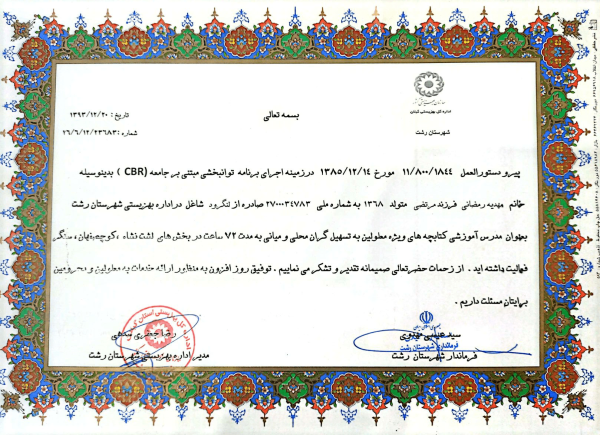 بسمه تعالی
اداره کل بهزیستی گیلان
شهرستان رشت
تاریخ: ۱۳۹۳/۱۲/۲۰
شماره: ۲۶/۶/۱۲/۲۳۶۸۳
پیرو دستورالعمل ۱۱/۸۰۰/۱۸۴۴ مورخ ۱۳۸۵/۱۲/۱۴ درزمینه اجرای برنامه توانبخشی مبتنی بر جامعه (CBR) بدینوسیله
خانم مهدیه رمضانی فرزند مرتضی متولد ۱۳۶۸ به شماره ملی ۲۷۰۰۰۳۴۷۸۳ صادره از لنگرود شاغل در اداره بهزیستی شهرستان رشت
بعنوان مدرس آموزشی کتابچه های ویژه معلولین به تسهیل گران محلی و میانی به مدت ۷۲ ساعت در بخش های لشت نشاء ،کوچصفهان، سنگر
فعالیت داشته اید . از زحمات حضرتعالی صمیمانه تقدیر و تشکر می نماییم . توفیق روز افزون به منظور ارائه خدمات به معلولین و محرومین
برایتان مسئلت داریم .
رضا جعفری
مدیر اداره بهزیستی شهرستان رشت
سید عباس
فرمانداری شهرستان رشت
فرماندار شهرستان رشت